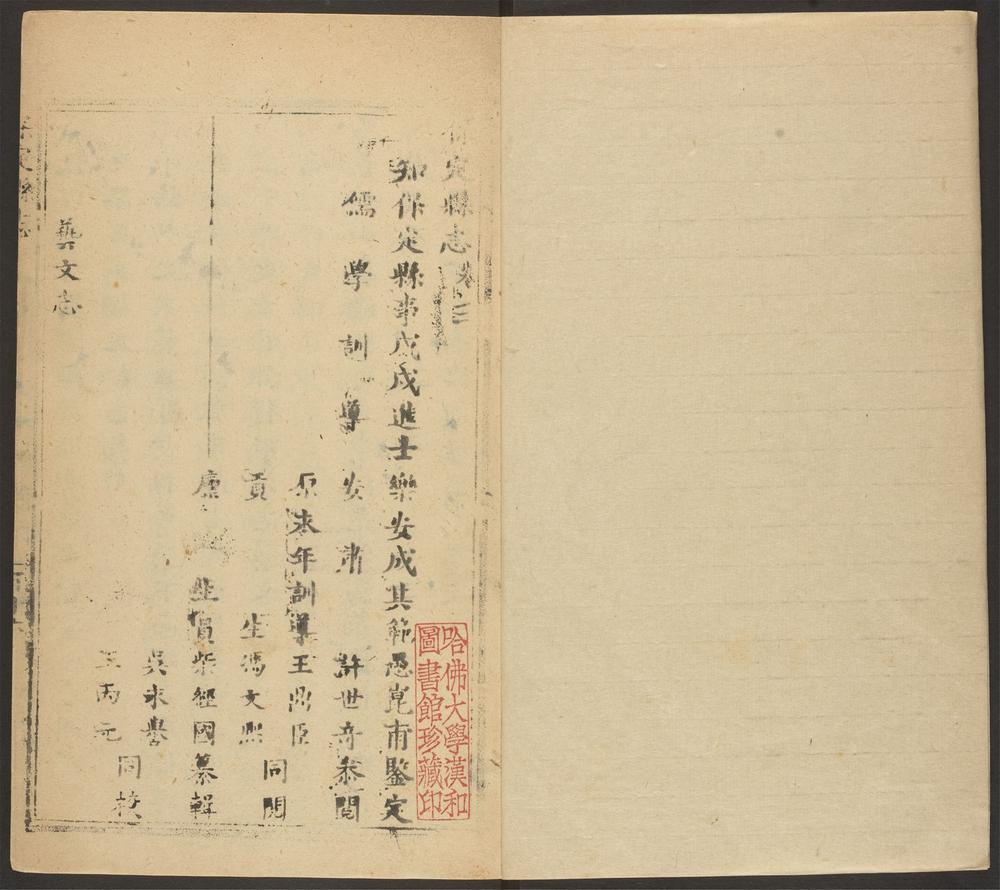 定縣志卷三
知保定縣事戊戌進士樂安成其範愚崑甫鑒定
儒學訓導安肅許世奇叅閱
原未年訓導王鼎臣
貢生馮文熙
同閱
廩生員柴經國纂輯
吳來譽
王丙元
同校
藝文志
哈佛大學漢和
圖書館珍藏印